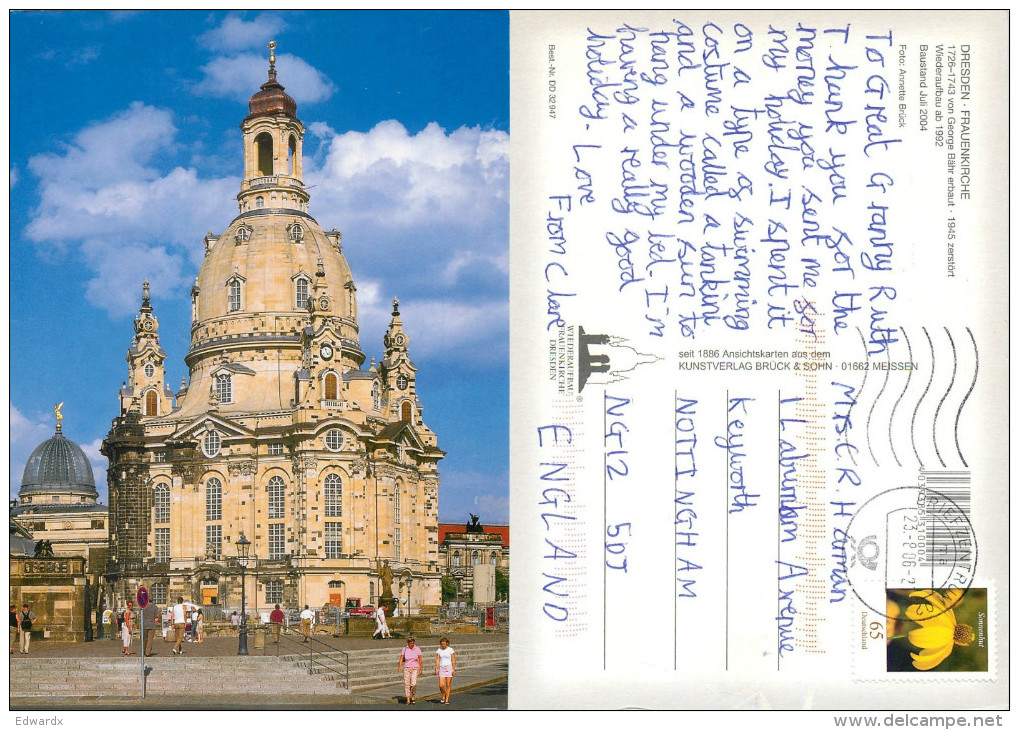 DRESDEN · FRAUENKIRCHE
1726–1743 von George Bähr erbaut · 1945 zerstört
Wiederaufbau ab 1992
Baustand Juli 2004
Foto: Annette Brück
To Great Granny Ruth
Thank you for the
money you sent me for
my holiday. I spent it
on a type of swimming
costume called a tankini
and a wooden sun to
hang under my bed. I'm
having a really good
holiday. Love
From Clare
Best.-Nr. DD 32 947
seit 1886 Ansichtskarten aus dem
KUNSTVERLAG BRÜCK & SOHN · 01662 MEISSEN
WIEDERAUFBAU
FRAUENKIRCHE
DRESDEN
®
Mrs E R. Harman
1 Laburnham Avenue
Keyworth
NOTTINGHAM
NG12 5DJ
ENGLAND
BRIEFZENTRUM
23.-8.06-2
Sonnenhut
65
Deutschland
Edwardx
www.delcampe.net